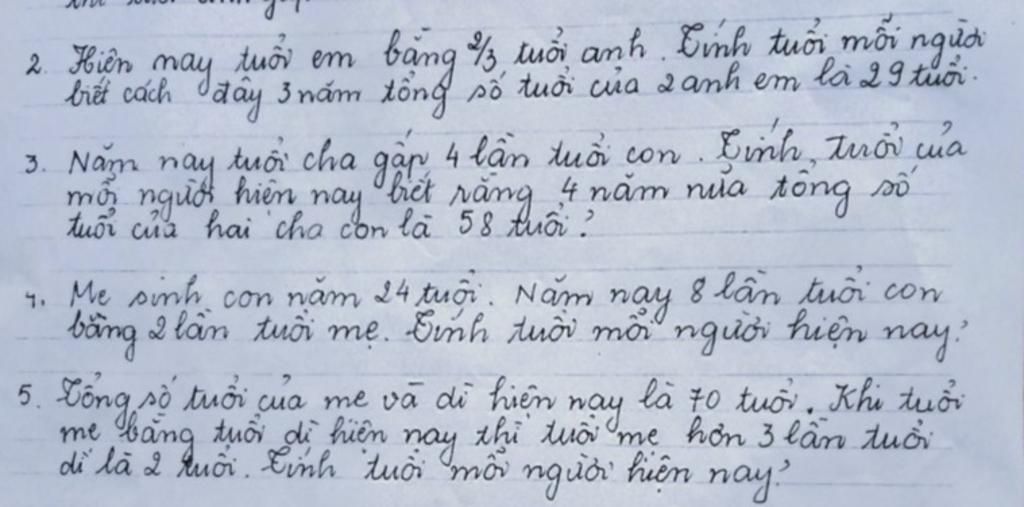 2. Hiện nay tuổi em bằng 2/3 tuổi anh. Tính tuổi mỗi người
biết cách đây 3 năm tổng số tuổi của 2 anh em là 29 tuổi.
3. Năm nay tuổi cha gấp 4 lần tuổi con. Tính tuổi của
mỗi người hiện nay biết rằng 4 năm nữa tổng số
tuổi của hai cha con là 58 tuổi?
4. Mẹ sinh con năm 24 tuổi. Năm nay 8 lần tuổi con
bằng 2 lần tuổi mẹ. Tính tuổi mỗi người hiện nay?
5. Tổng số tuổi của mẹ và dì hiện nay là 70 tuổi. Khi tuổi
mẹ bằng tuổi dì hiện nay thì tuổi mẹ hơn 3 lần tuổi
dì là 2 tuổi. Tính tuổi mỗi người hiện nay?